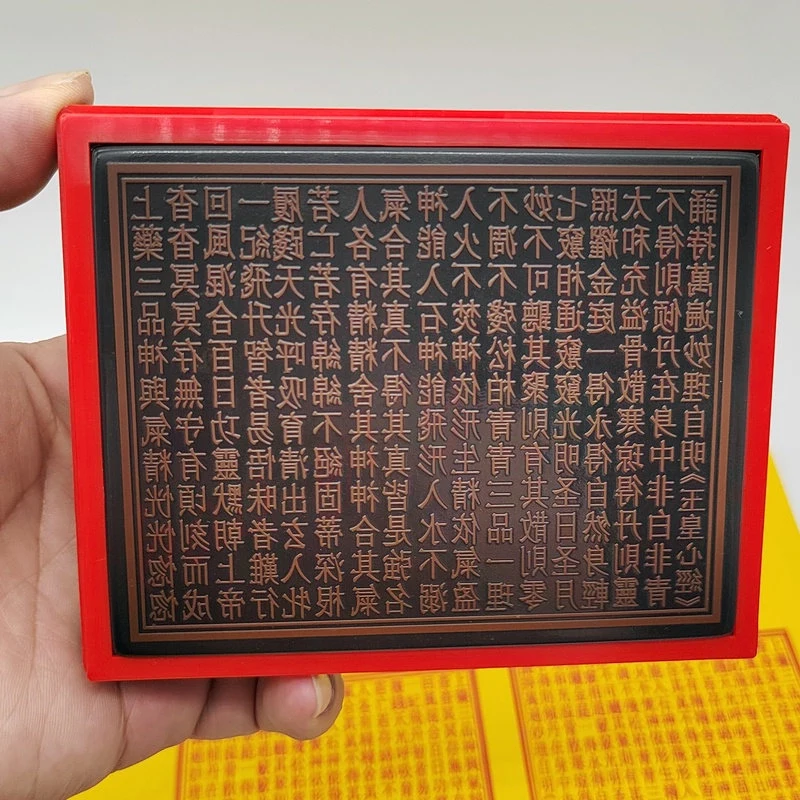 上藥三品神與氣精恍恍惚惚
杳杳冥冥存無守有頃刻而成
回風混合百日功靈默朝上帝
一紀飛升智者易悟昧者難行
履踐天光呼吸育清出玄入牝
若亡若存綿綿不絕固蒂深根
人各有精精舍其神神合其氣
氣合其真不得其真皆是強名
神能入石神能飛形入水不溺
入火不焚神依形生精依氣盈
不凋不殘松柏青青三品一理
妙不可聽其聚則有其散則零
七竅相通竅竅光明圣日圣月
照耀金庭一得永得自然身輕
太和充溢骨散寒瓊得丹則靈
不得則傾丹在身中非白非青
誦持萬遍妙理自明《玉皇心經》